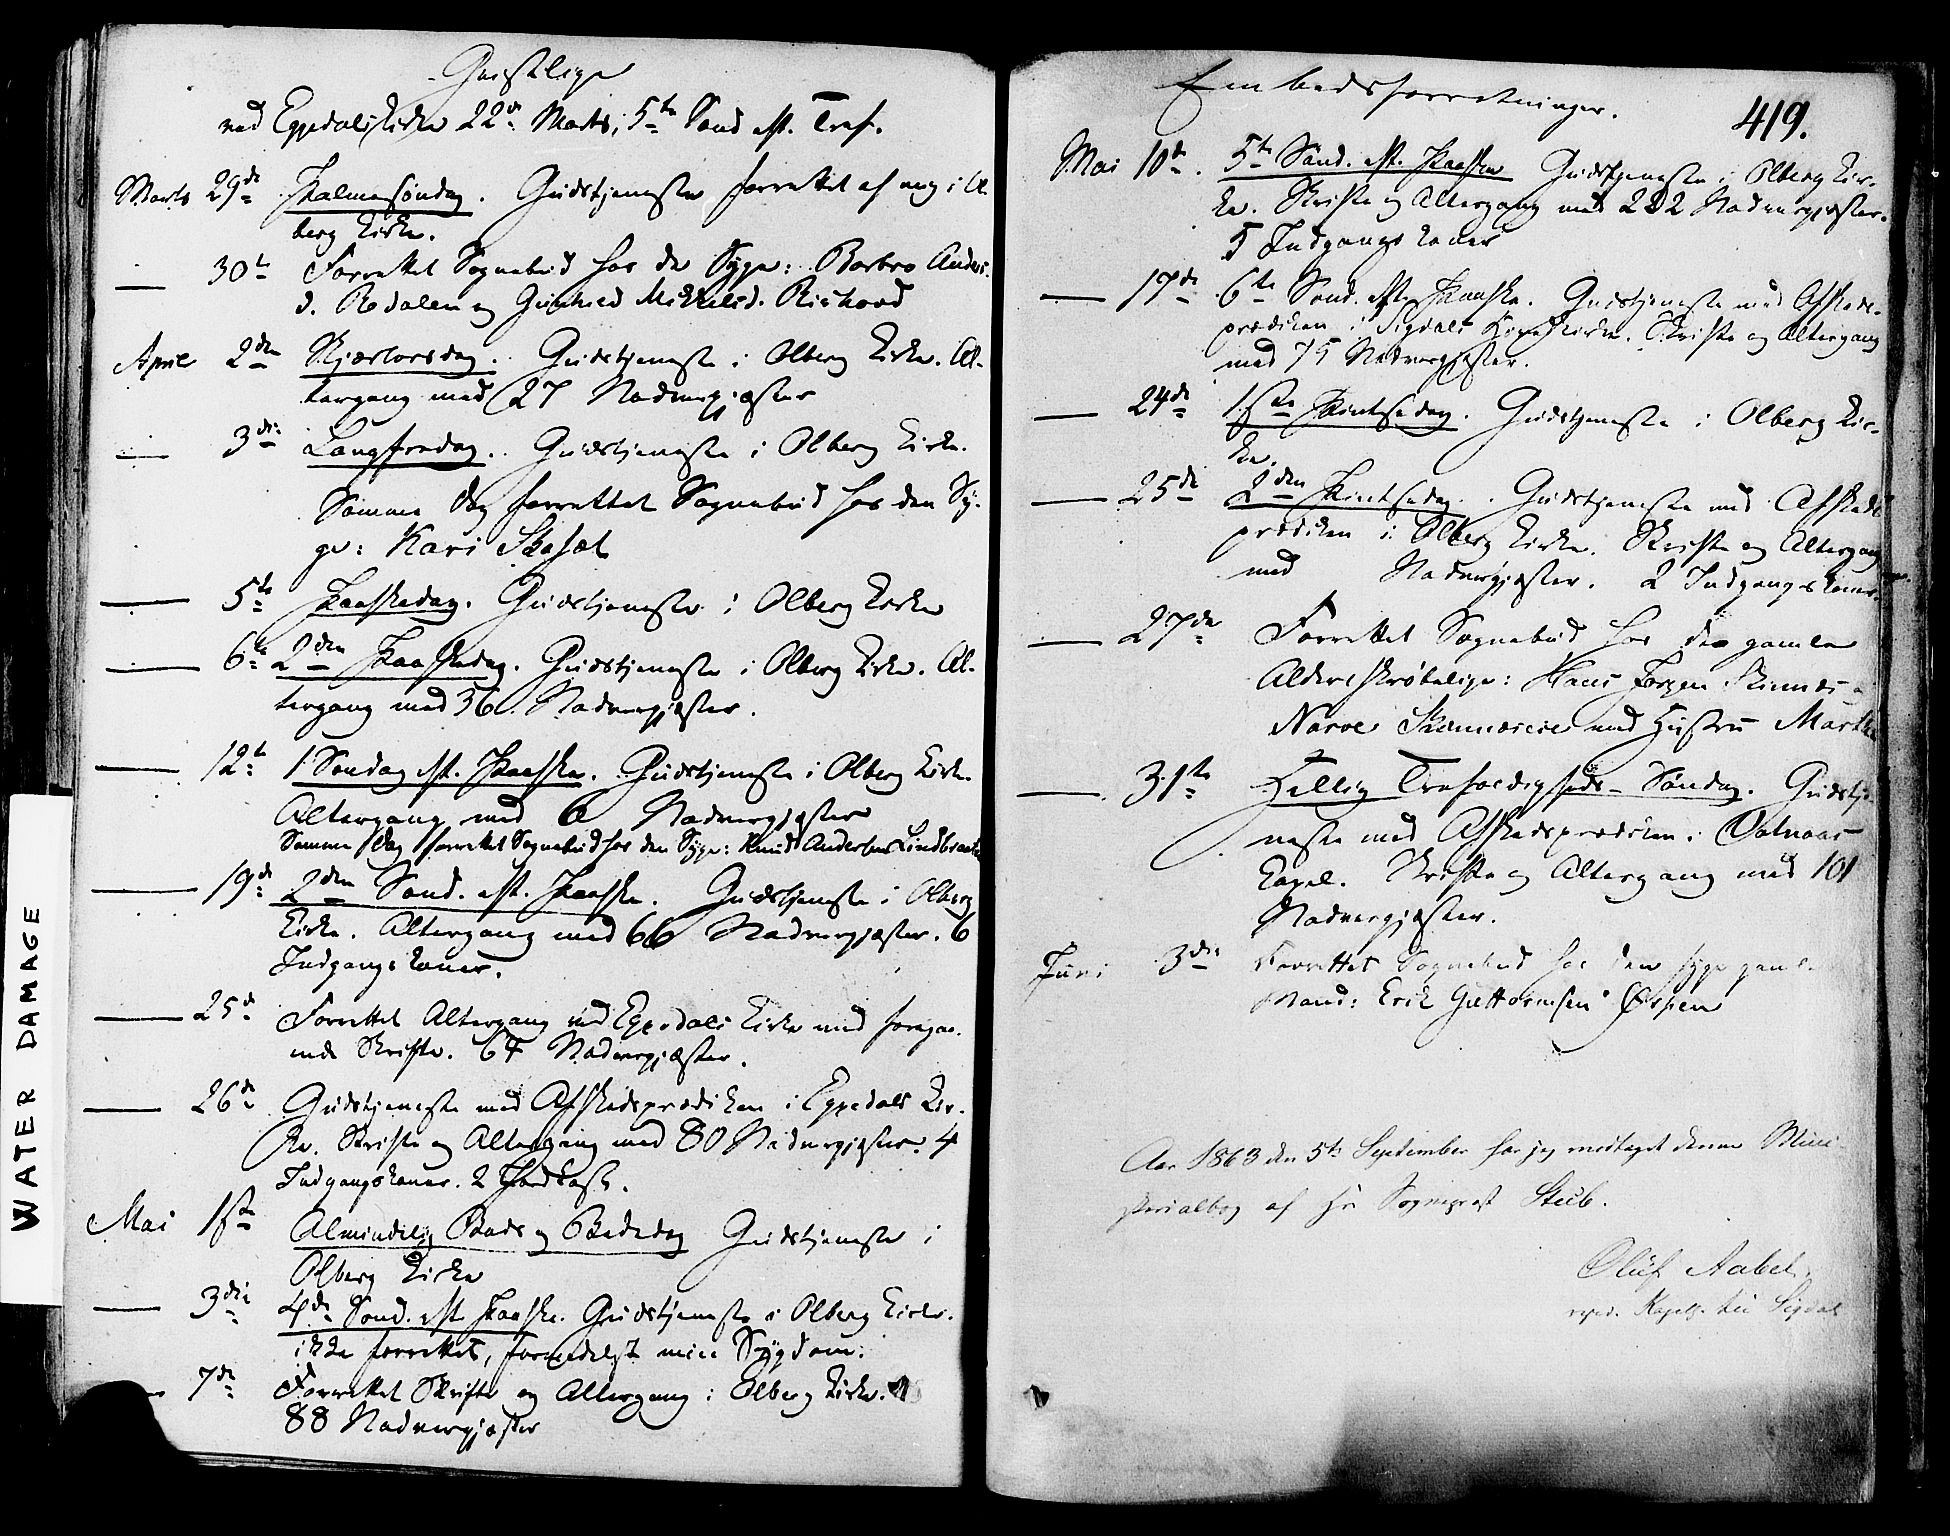 Geistlige
ved Eggedals Kirke 22de Marts, 5te Sønd. eft. Tref.
Marts 29de Palmesøndag. Gudstjeneste forrettet af mig i Ol-
berg Kirke.
— 30te Forrettet Sognebud hos de Syge: Barbro Anders-
d. Rodalen og Gunhild Mikkelsd.
April 2den Skjærtorsdag. Gudstjeneste i Olberg Kirke. Al-
tergang med 27 Nadvergjæster
— 3die Langfredag. Gudstjeneste i Olberg Kirke.
Samme Dag forrettet Sognebud hos den Sy-
ge: Kari
— 5te Paaskedag. Gudstjeneste i Olberg Kirke
— 6te 2den Paaskedag. Gudstjeneste i Olberg Kirke. Al-
tergang med 36 Nadvergjæster.
— 12te 1 Søndag eft. Paaske. Gudstjeneste i Olberg Kirke.
Altergang med 6 Nadvergjæster
Samme Dag forrettet Sognebud hos den Syge: Knud Andersen Lindbraaten
— 19de 2den Sønd. eft. Paaske. Gudstjeneste i Olberg
Kirke. Altergang med 66 Nadvergjæster. 6
Indgangskoner.
— 25de Forrettet Altergang ved Eggedals Kirke med foregaa-
ende Skrifte. 64 Nadvergjæster.
— 26de Gudstjeneste med Afskedsprædiken i Eggedals Kir-
ke. Skrifte og Altergang med 80 Nadvergjæster. 4
Indgangskoner. 2 Jordkast.
Mai 1ste Almindelig Bods og Bededag Gudstjeneste i
Olberg Kirke
— 3die 4de Sønd. eft. Paaske. Gudstjeneste i Olberg Kirke.
ikke forrettet, formedelst min Sygdom.
— 7de Forrettet Skrifte og Altergang i Olberg Kirke.
88 Nadvergjæster
Embedsforretninger.
419.
Mai 10de. 5te Sønd. eft. Paaske Gudstjeneste i Olberg Kir-
ke. Skrifte og Altergang med 202 Nadvergjæster.
5 Indgangskoner
— 17de 6te Sønd. eft. Paaske. Gudstjeneste med Afskeds-
prædiken i Sigdals Hovedkirke. Skrifte og Altergang
med 75 Nadvergjæster.
— 24de 1ste Pintsedag. Gudstjeneste i Olberg Kir-
ke.
— 25de 2den Pintsedag. Gudstjeneste med Afskeds
prædiken i Olberg Kirke. Skrifte og Altergang
med Nadvergjæster. 2 Indgangskoner.
— 27de Forrettet Sognebud hos de gamle
Alderskrøbelige: Hans Jørgen Skinnes
Narve med Hustru Marthe
— 31te Hellig Trefoldigheds-Søndag. Gudstje-
neste med Afskedsprædiken i
Capel. Skrifte og Altergang med 101
Nadvergjæster.
Juni 3die Forrettet Sognebud hos den syge gamle
Mand: Erik Guttormsen Ørpen
Aar 1863 den 5te September har jeg modtaget denne Mini-
sterialbog af Hr. Sogneprest Stub.
Oluf Aabel,
resid. Kapell. til Sigdal
WATER DAMAGE